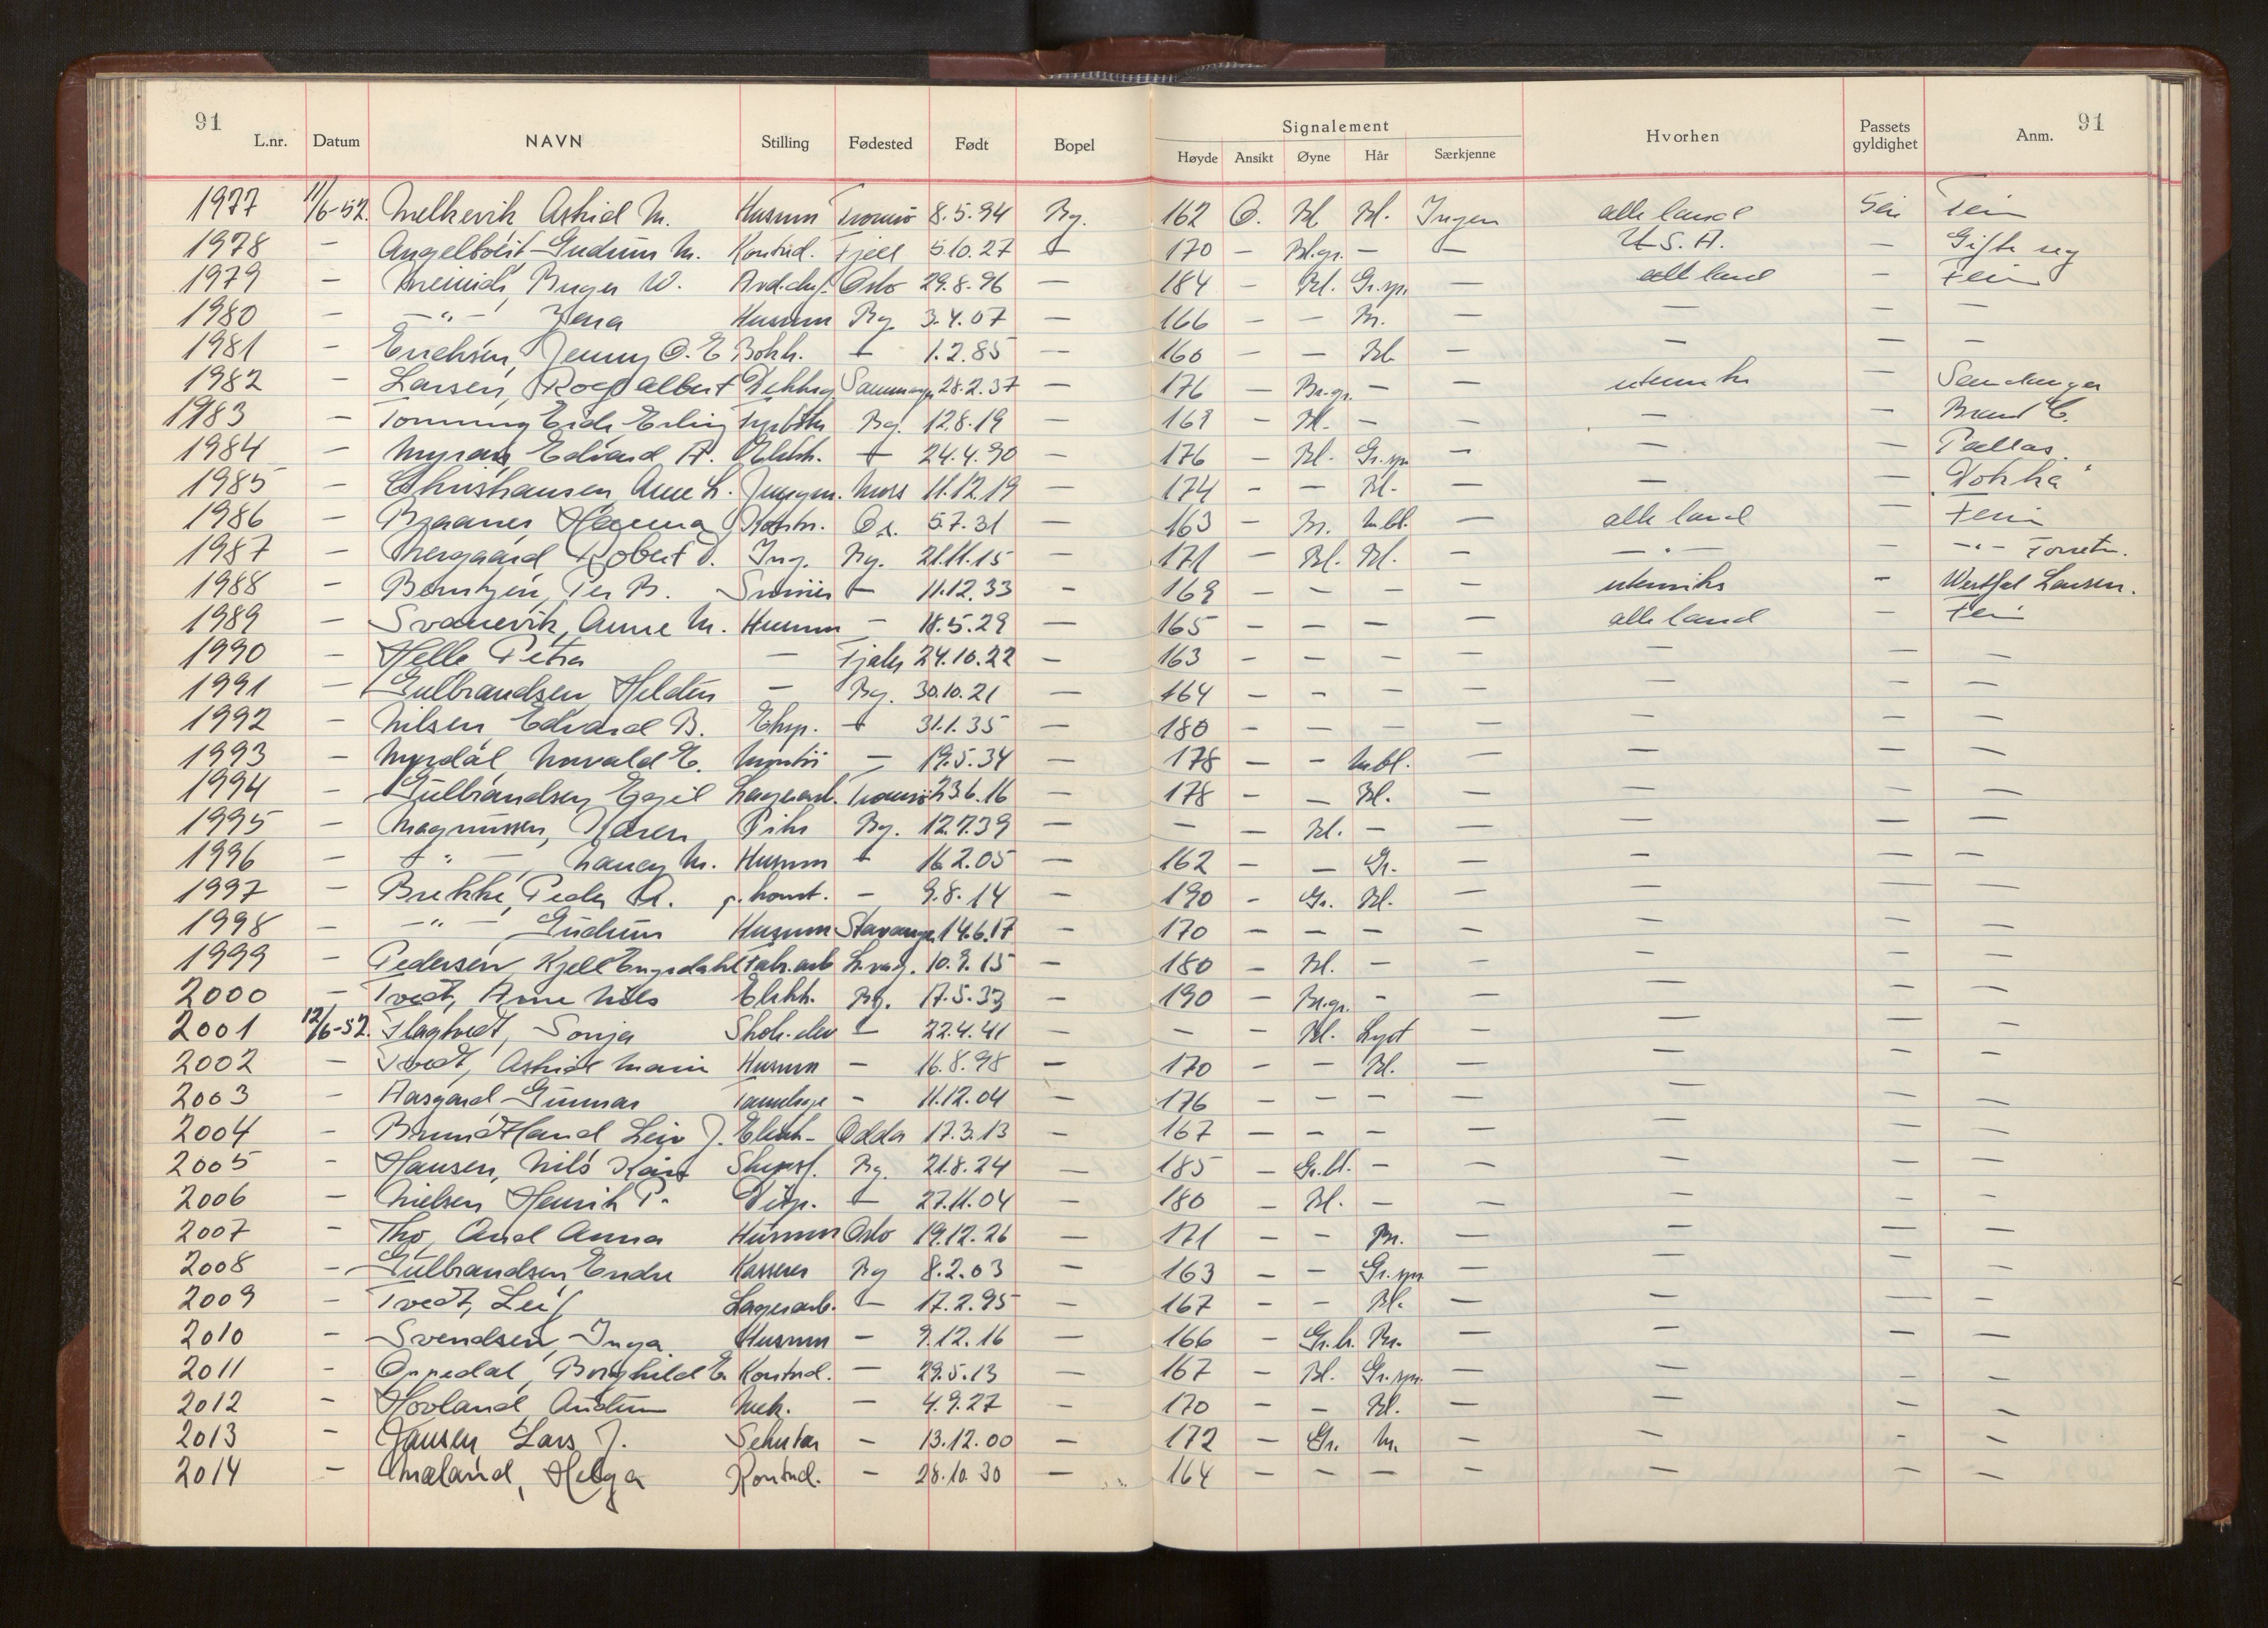 91 91
Signalement
L.nr. Datum NAVN Stilling Fødested Født Bopel Høyde Ansikt Øyne Hår Særkjenne Hvorhen Passets gyldighet Anm.
1977 11/6-52. Melkevik Astrid M. Husmm Tromsø 8.5.94 Bg. 162 O. Bl Bl. Ingen alle land 5 år Ferie
1978 — Gudrun M. Kontrd. Fjell 5.10.27 — 170 — Bl.gr. — — U.S.A. — Gifte seg
1979 — Birger W. Avd.chef. Oslo 29.8.96 — 184 — Bl. Gr.spr. — alle land — Ferie
1980 — —"— Husmm Bg. 3.4.07 — 166 — — Br. — — — —
1981 — Erichsen, Jenny O. E Bokh. — 1.2.85 — 160 — — Bl. — — — —
1982 — Larsen, Roep albert Dekksg. 28.2.37 — 176 — Br.gr. — — utenriks —
1983 — Tonning Eide Erling Bg. 12.8.19 — 163 — Bl. — — — Brand C.
1984 — Edvard A. Elektr. — 24.4.90 — 176 — Bl. Gr.spr — — — Pallas.
1985 — Christiansen, Arne L. Jungm. Moss 11.12.19 — 174 — — Bl. — — — "Dokka"
1986 — Hanna Kontr. Os. 5.7.31 — 163 — Br. M.bl. — alle land — Ferie
1987 — Mergaard Robert O. Ing. Bg. 21.11.15 — 171 — Bl. Bl. — —"— — —"— Forretn.
1988 — Berntzen, Per B. — 11.12.33 — 169 — — — — utenriks — Westfal Larsen.
1989 — Svanevik, Anne M. Husmm — 11.5.29 — 165 — — — — alle land — Ferie
1990 — Helle Petra — Fjaler 24.10.22 — 163 — — — — — — —
1991 — Gulbrandsen, — Bg. 30.10.21 — 164 — — — — — — —
1992 — Nilsen, Edvard B. Eksp. — 31.1.35 — 180 — — — — — — —
1993 — Myrdal E. Montør — 19.5.34 — 178 — — M.bl. — — — —
1994 — Gulbrandsen, Egil Lagerarb. Tromsø 23.6.16 — 178 — — Bl. — — — —
1995 — Magnussen, Karen Pike Bg. 12.7.39 — — — Bl. — — — — —
1996 — —"— Nancy M. Husmm — 16.2.05 — 162 — — Gr. — — — —
1997 — Brekke, Peder A. — 9.8.14 — 190 — Gr. Bl. — — — —
1998 — —"— Gudrun Husmm Stavanger 14.6.17 — 170 — — — — — — —
1999 — Pedersen, Kjell Engedahl Fabr.arb L.våg. 10.9.15 — 180 — Bl. — — — — —
2000 — Tvedt, Arne Nils Elektr. Bg. 17.5.33 — 190 — Br.gr. — — — — —
2001 12/6-52. Flagtvedt, Sonja Skole-elev — 22.4.41 — — — Bl. Lyst — — — —
2002 — Tvedt, Astrid Marie Husmm — 16.8.98 — 170 — — Bl. — — — —
2003 — Aasgard Gunnar Tannlege — 11.12.04 — 176 — — — — — — —
2004 — Brundtland Leiv J. Elektr. Odda 17.3.13 — 167 — — — — — — —
2005 — Hansen, Nils Kåre Skipsf. Bg. 21.8.24 — 185 — Gr.bl. — — — — —
2006 — Nielsen Henrik P. Disp. — 27.11.04 — 180 — Bl. — — — — —
2007 — Tho, Aud Anna Husmm Oslo 19.12.26 — 171 — — Br. — — — —
2008 — Gulbrandsen, Endre Kasserer Bg 8.2.03 — 163 — — Gr.spr. — — — —
2009 — Tvedt, Leif Lagerarb. — 17.2.95 — 167 — — Bl. — — — —
2010 — Svendsen, Inga Husmm — 9.12.16 — 166 — Gr.b. Br. — — — —
2011 — Oppedal, Borghild E. Kontrd. — 29.5.13 — 167 — Bl. Gr.spr. — — — —
2012 — Hovland Audun Mek. — 4.9.27 — 170 — — Bl. — — — —
2013 — Jansen Lars J. Sekretær — 13.12.00 — 172 — Gr. M. — — — —
2014 — Mæland, Helga Kontrd. — 28.10.30 — 164 — — — — — — —